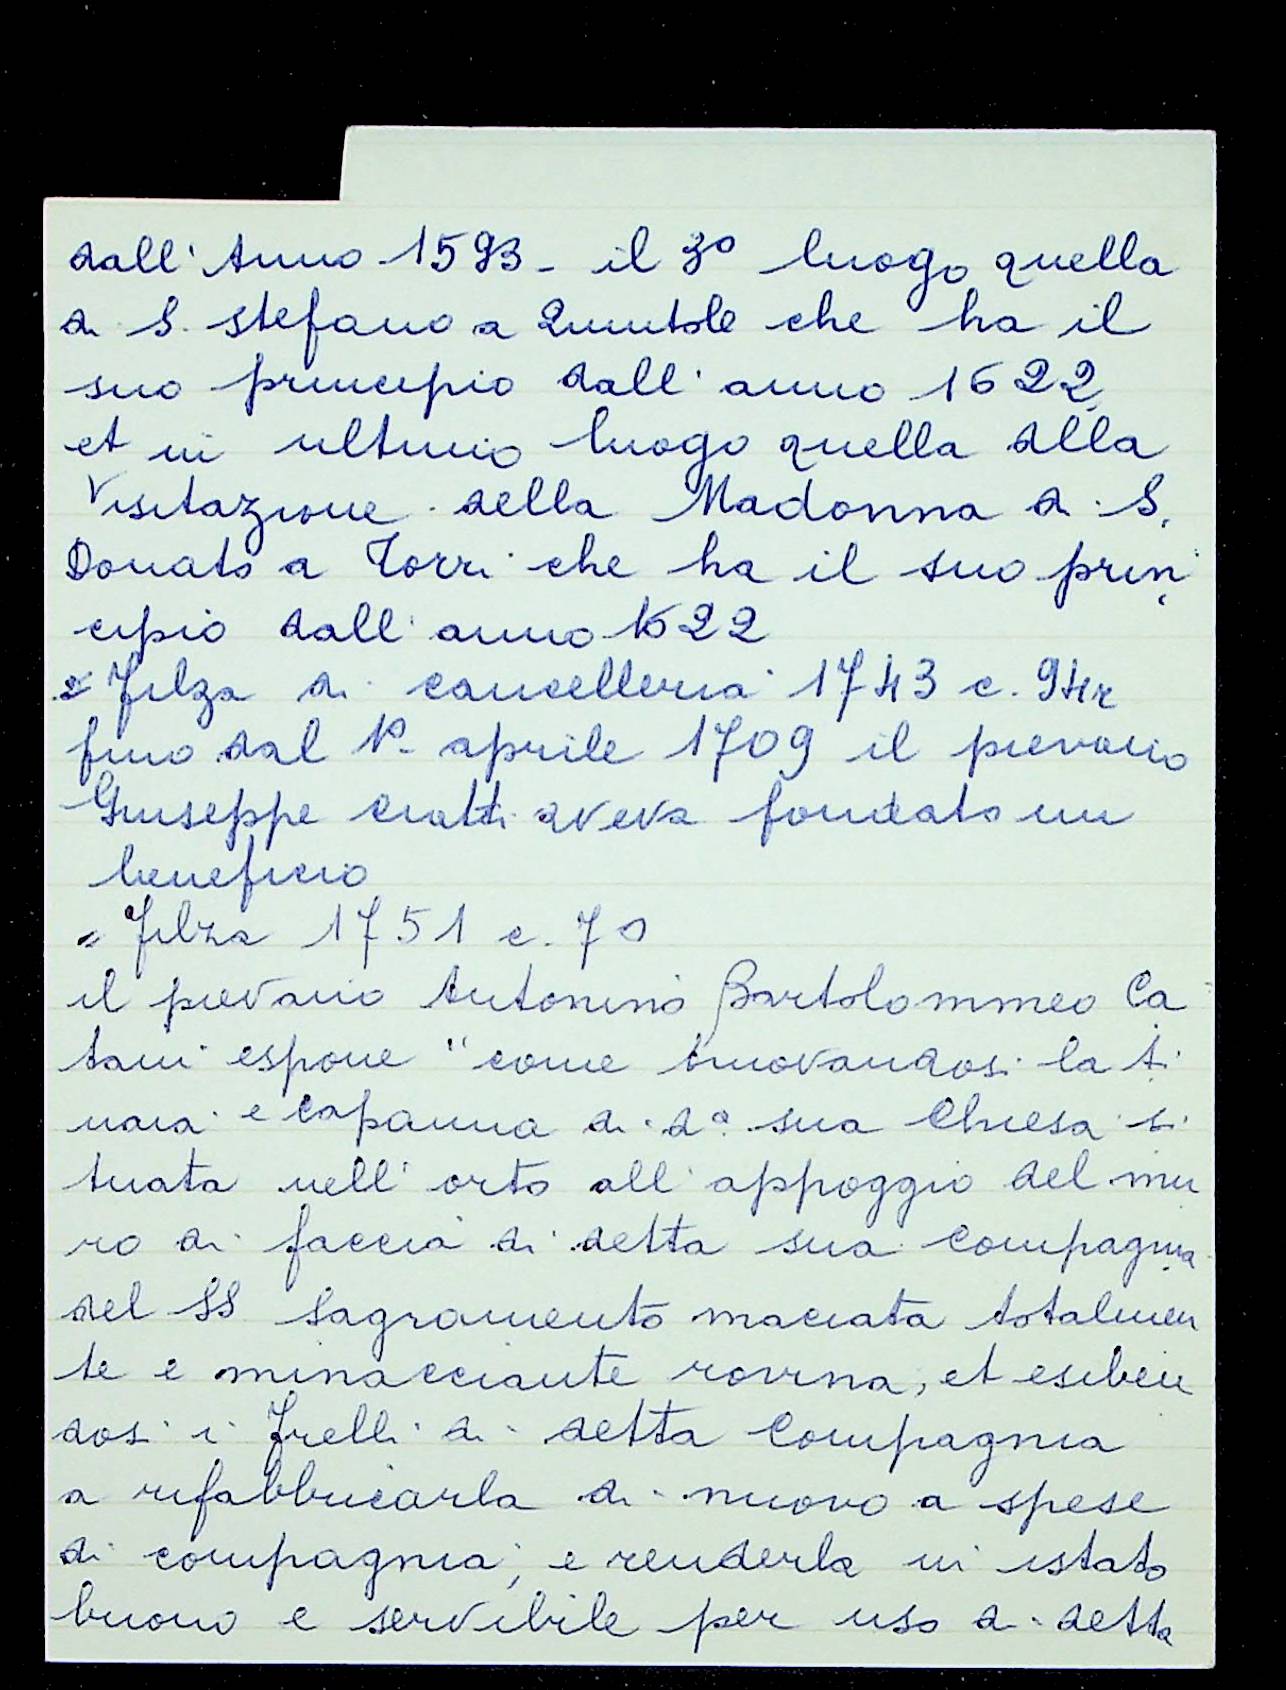 dall'Anno 1593 - il 3º luogo quella
di S. Stefano a Quintole che ha il
suo principio dall'anno 1622
et in ultimo luogo quella della
Visitazione della Madonna di S.
Donato a Torri che ha il suo prin
cipio dall'anno 1622
Filza di cancelleria 1743 c. 94r
fino dal 1º aprile 1709 il pievano
Giuseppe aveva fondato un
beneficio
" Filza 1751 c. 70
il pievano Antonino Bartolommeo Ca
tani espone "come trovandosi la ti
naia e capanna di dª sua Chiesa si
tuata nell'orto all'appoggio del mu
ro di faccia di detta sua Compagnia
del SS Sagramento maciata totalmen
te e minacciante rovina, et esiben
dosi i frelli di detta Compagnia
a rifabbricarla di nuovo a spese
di compagnia, e renderla in istato
buono e servibile per uso di detta